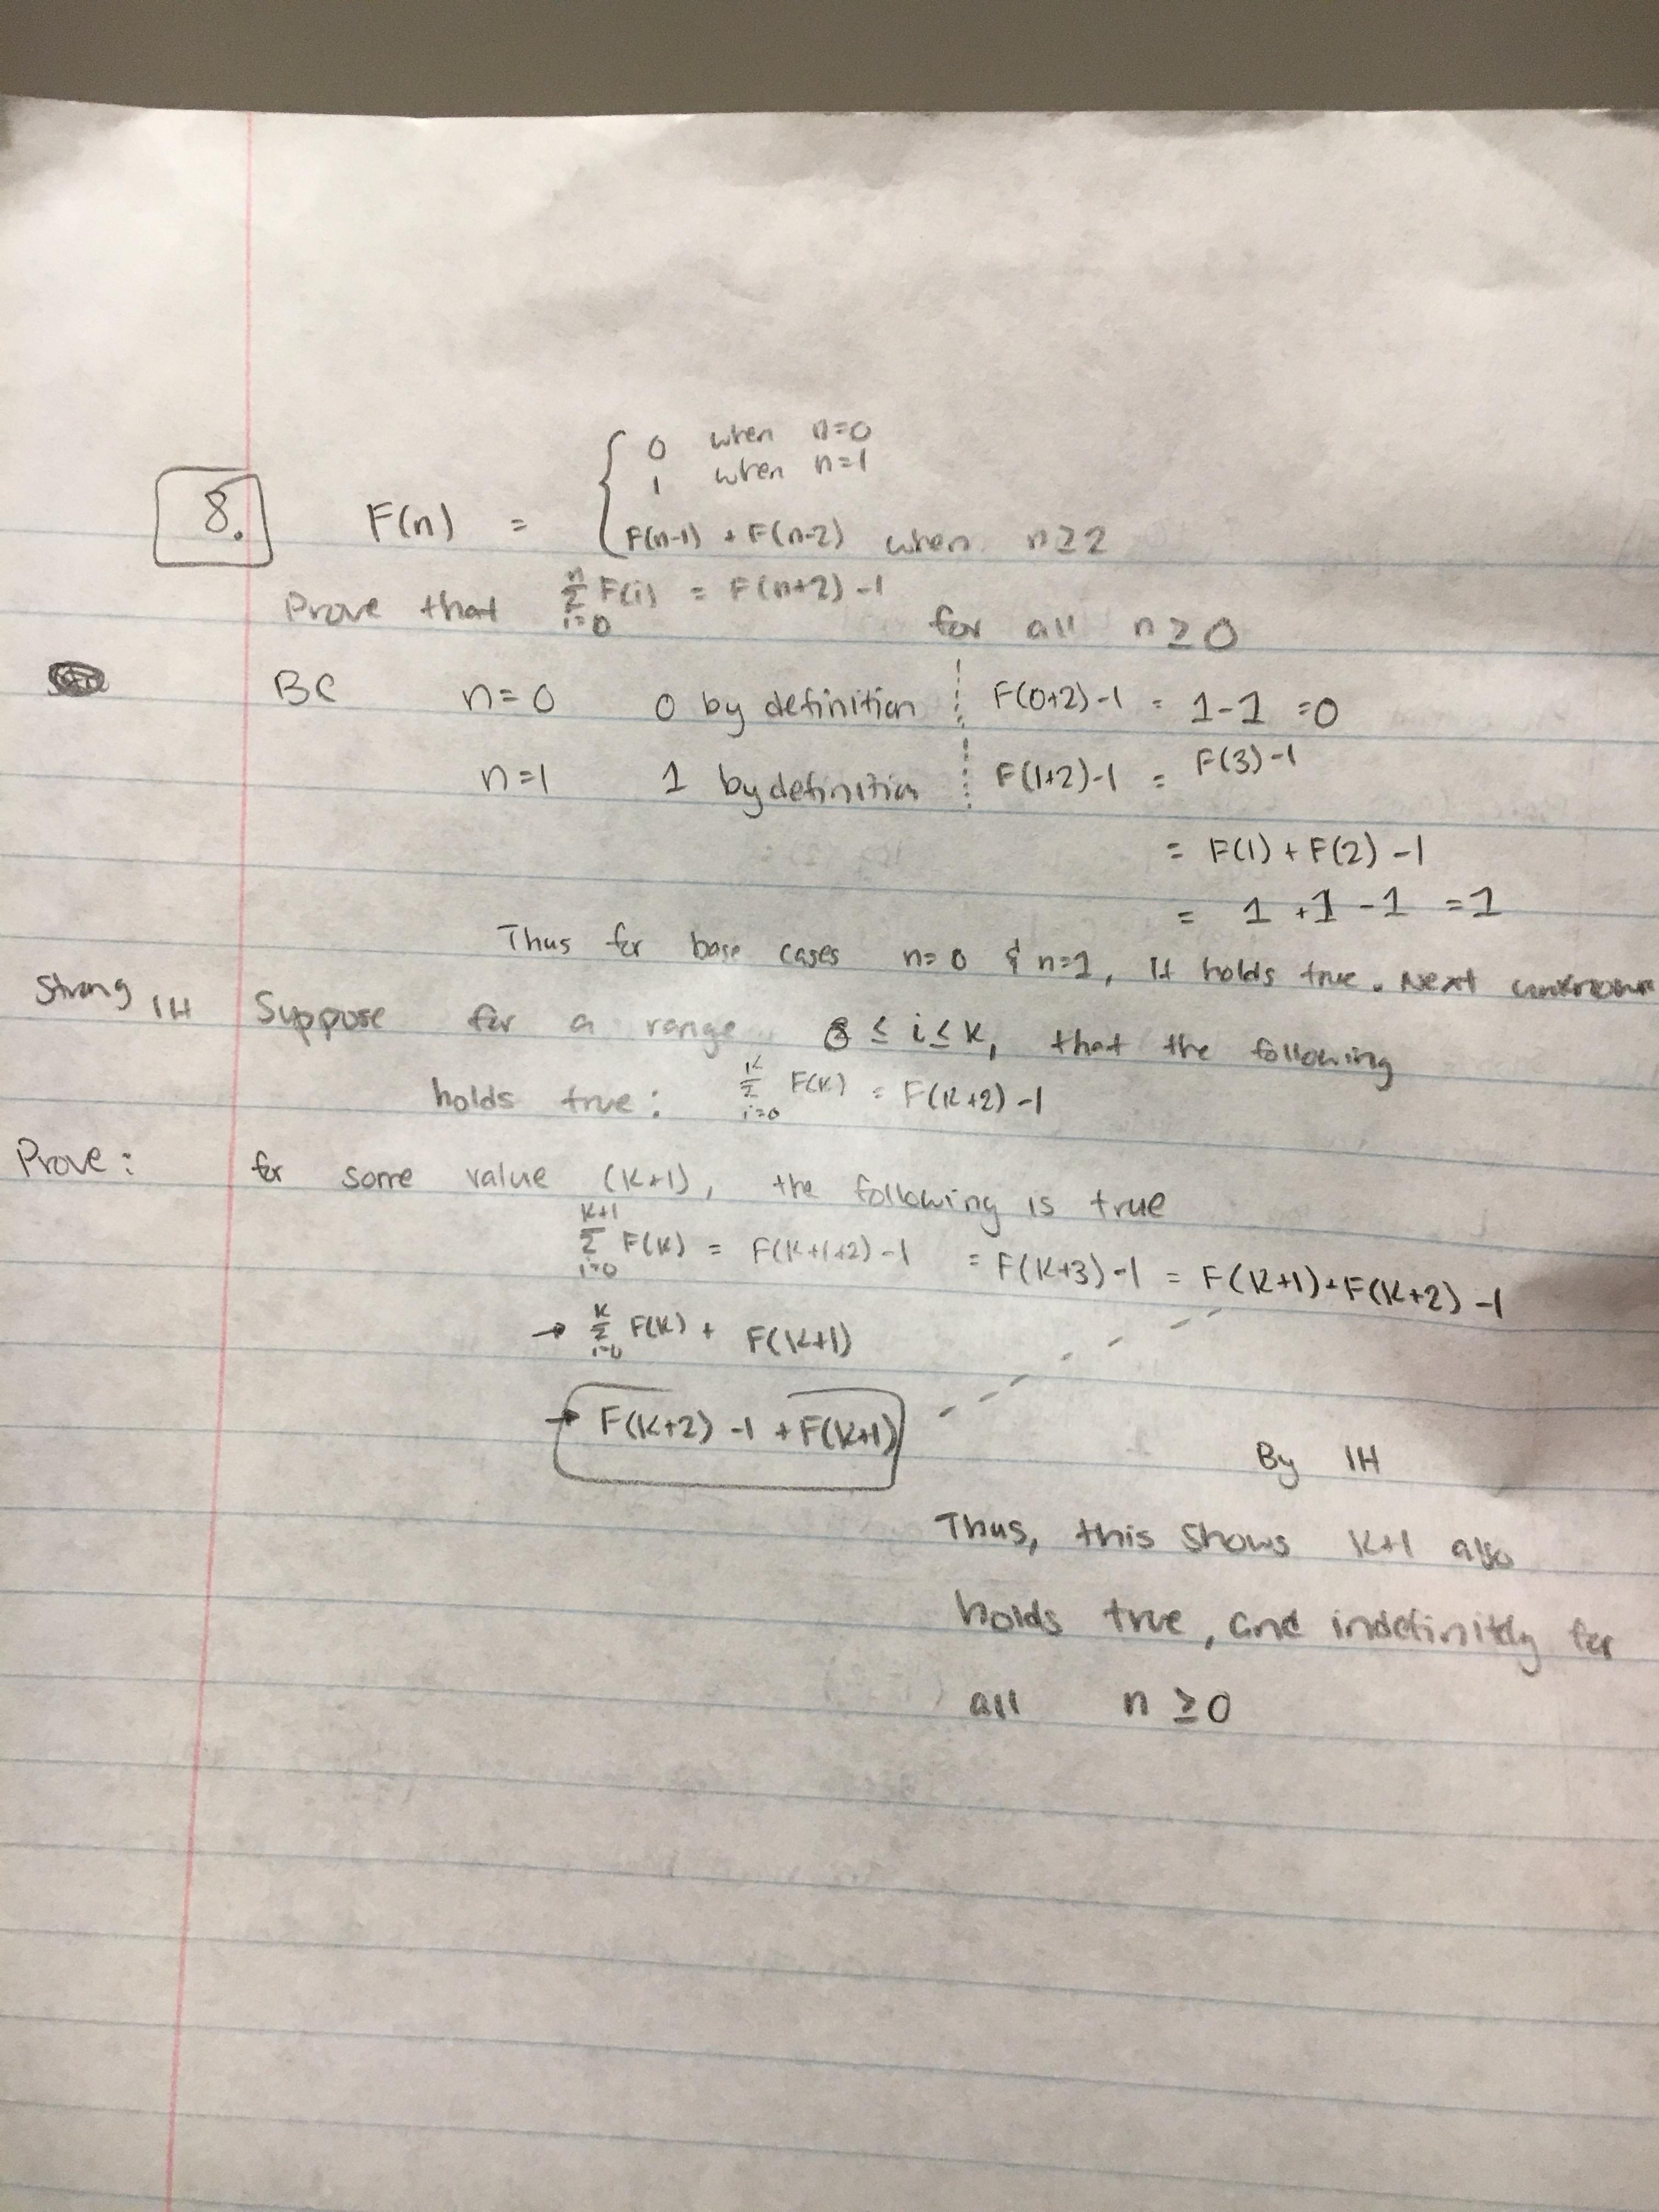 8. F(n) = { 0 when n=0
1 when n=1
F(n-1) + F(n-2) when n≥2
Prove that n Σ i=0 F(i) = F(n+2) -1 for all n≥0
BC n=0 0 by definition F(0+2)-1 = 1-1 =0
n=1 1 by definition F(1+2)-1 = F(3)-1
= F(1) + F(2) -1
= 1 +1 -1 =1
Thus for base cases n=0 & n=1, it holds true. Next unknown
Strong IH Suppose for a range 0 ≤ i ≤ K, that the following
holds true: K Σ i=0 F(K) = F(K+2) -1
Prove: for some value (K+1), the following is true
K+1 Σ i=0 F(K) = F(K+1+2) -1 = F(K+3) -1 = F(K+1)+F(K+2) -1
→ K Σ i=0 F(K) + F(K+1)
→ F(K+2) -1 +F(K+1)
By IH
Thus, this shows K+1 also
holds true, and indefinitly for
all n ≥0